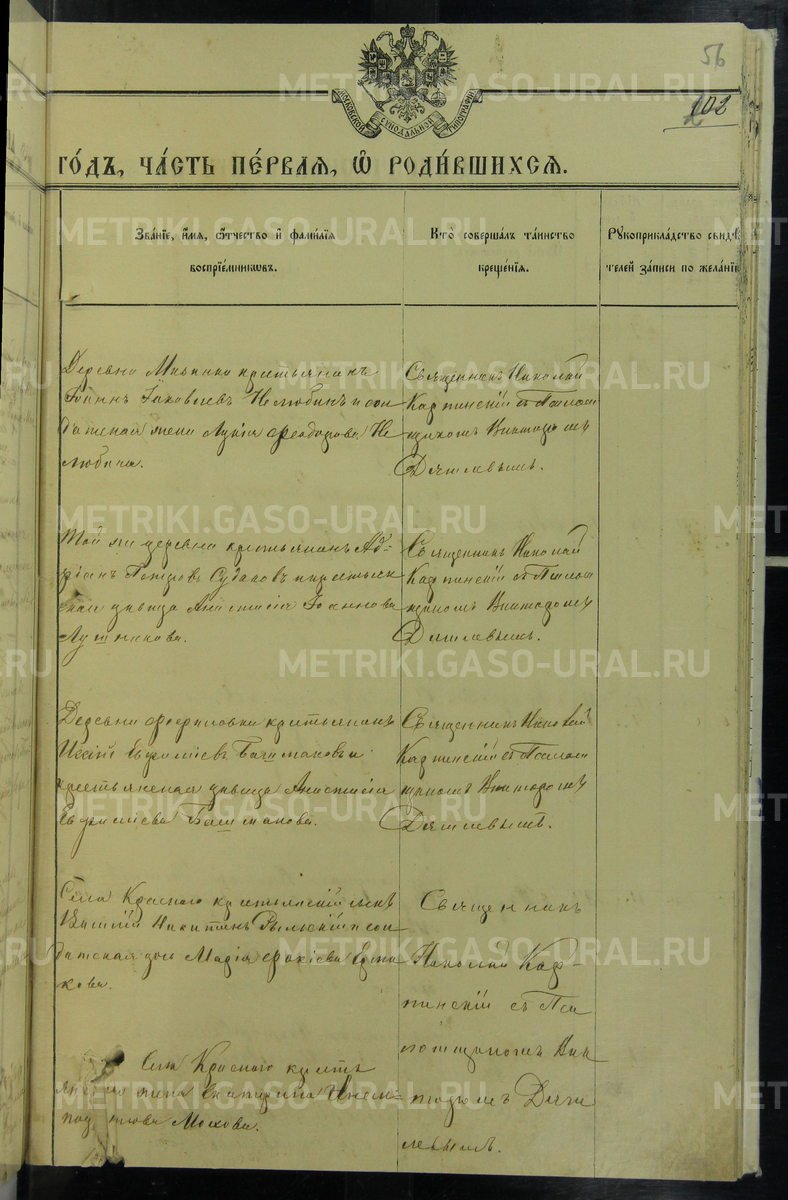 56
102
МОСКОВСКОЙ СѴНОДАЛЬНОЙ ТИПОГРАФІИ
ГО́ДЪ, ЧА́СТЬ ПЕ́РВАЯ, Ѽ РОДИ́ВШИХСЯ.
Зва́нїе, и҆́мя, ѻ҆́тчество и҆ фами́лїя
воспрїе́мникѡвъ.
Кто̀ соверша́лъ та́инство
креще́нїя.
Рꙋкоприкла́дство свидѣ́
телей за́писи по жела́нїю
Деревни крестьянинъ
Іоаннъ Іаковлевъ Нелюбинъ и сол
датская жена Лукія Ѳеодорова Не
любина.
Священникъ Николай
Карпинскій съ Псалом
щикомъ Викторомъ
Дягилевымъ.
Той же деревни крестьянинъ Ад-
ріанъ Петровъ и крестьян
ская дѣвица Анастасія Іоаннова
Священникъ Николай
Карпинскій съ Псалом
щикомъ Викторомъ
Дягилевымъ.
Деревни крестьянинъ
Евфиміевъ Башмаковъ и
крестьянская дѣвица Анастасія
Евфиміева Башмакова.
Священникъ Николай
Карпинскій съ Псалом
щикомъ Викторомъ
Дягилевымъ.
Села Краснаго крестьянскій сынъ
Никитинъ и сол
датская дочь Марія Фокіева
Священникъ
Николай Кар-
пинскій съ Пса
ломщикомъ Вик
торомъ Дяги
левымъ.
Села Краснаго кресть
жена Екатерина
Мохова.
METRIKI.GASO-URAL.RU